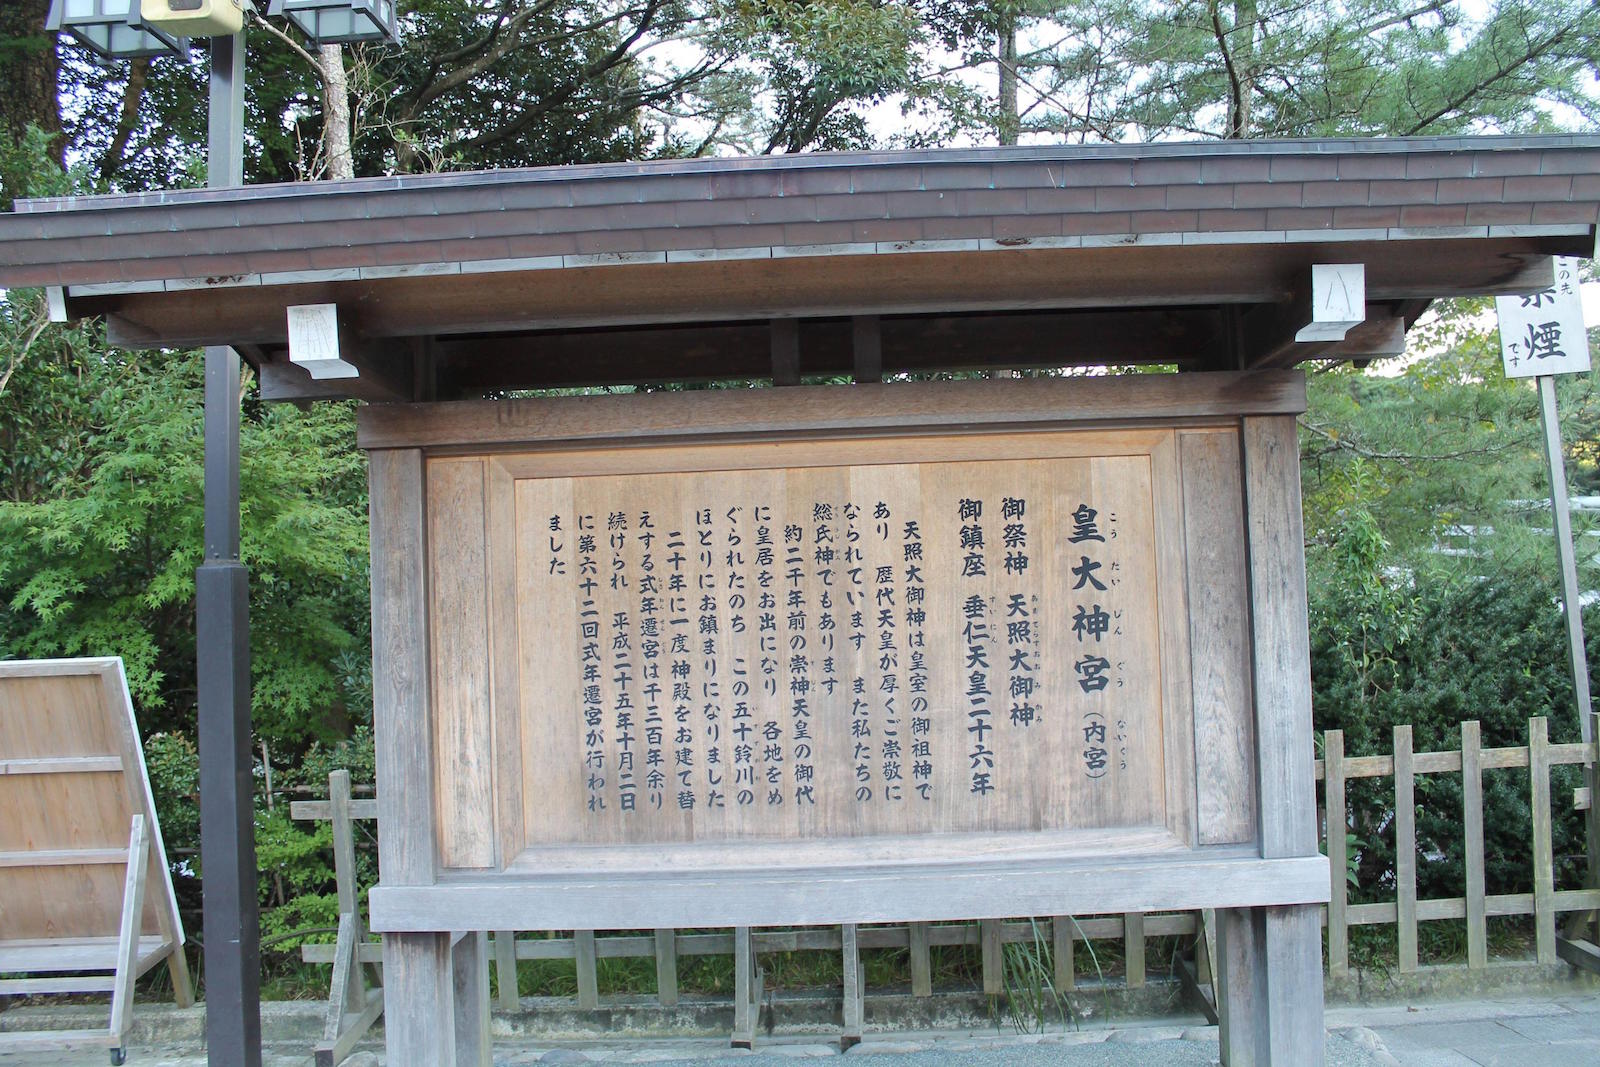 皇大神宮（内宮）
こうたいじんぐう ないくう
御祭神 天照大御神
あまてらすおおみかみ
御鎮座 垂仁天皇二十六年
すいにん
天照大御神は皇室の御祖神で
あり 歴代天皇が厚くご崇敬に
なられています また私たちの
総氏神でもあります
約二千年前の崇神天皇の御代
に皇居をお出になり 各地をめ
ぐられたのち この五十鈴川の
ほとりにお鎮まりになりました
二十年に一度神殿をお建て替
えする式年遷宮は千三百年余り
続けられ 平成二十五年十月二日
に第六十二回式年遷宮が行われ
ました
この先
禁煙
です